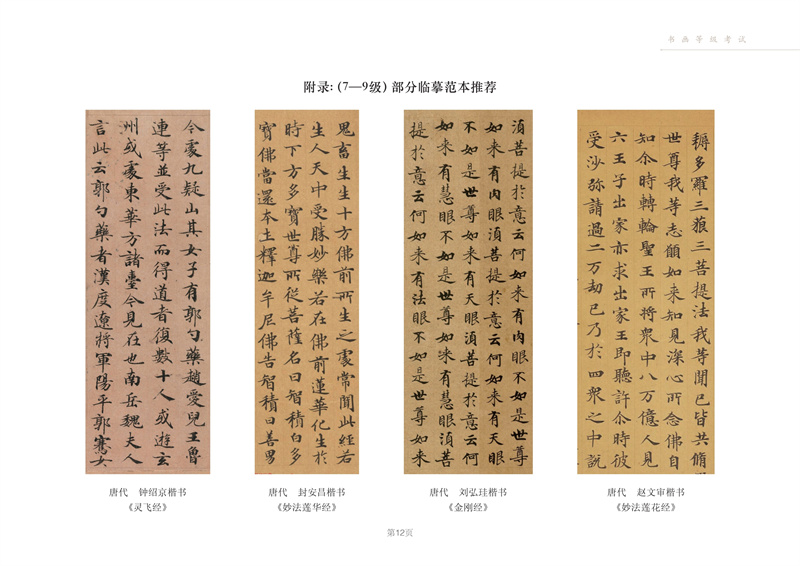 书画等级考试
附录：（7—9级）部分临摹范本推荐
今處九疑山其女子有郭勺藥趙愛兒王魯
連等並受此法而得道者復數十人或遊玄
州或處東華方諸臺今見在也南岳魏夫人
言此云郭勺藥者漢度遼將軍陽平郭騫女
鬼畜生生十方佛前所生之處常聞此經若
生人天中受勝妙樂若在佛前蓮華化生於
時下方多寶世尊所從菩薩名曰智積白多
寶佛當還本土釋迦牟尼佛告智積曰善男
湏菩提於意云何如来有肉眼不如是世尊
如来有肉眼湏菩提於意云何如来有天眼
不如是世尊如来有天眼湏菩提於意云何
如来有慧眼不如是世尊如来有慧眼湏菩
提於意云何如来有法眼不如是世尊如来
耨多羅三藐三菩提法我等聞已皆共脩
世尊我等志願如来知見深心所念佛自
知尒時轉輪聖王所將衆中八万億人見
六王子出家亦求出家王即聽許尒時彼
受沙弥請過二万劫已乃於四衆之中說
唐代 钟绍京楷书
《灵飞经》
唐代 封安昌楷书
《妙法莲华经》
唐代 刘弘珪楷书
《金刚经》
唐代 赵文审楷书
《妙法莲花经》
第12页